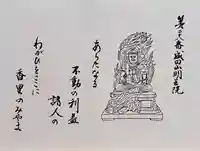 成田山明王院
あらたなる
不動の利益
諸人の
わがひをここに
香里のみやま